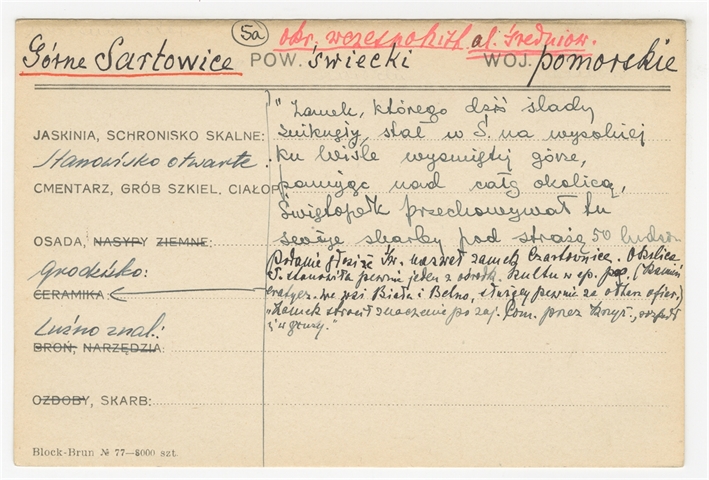 5a okr. wczesnohist. al. średniow.
Górne Sartowice POW. świecki WOJ. pomorskie
JASKINIA, SCHRONISKO SKALNE:
Stanowisko otwarte:
CMENTARZ, GRÓB SZKIEL. CIAŁOP
OSADA, NASYPY ZIEMNE:
Grodzisko:
CERAMIKA:
Luźno znal.:
BROŃ, NARZĘDZIA:
OZDOBY, SKARB:
"Zamek, którego dziś ślady
zniknęły, stał w S. na wysokiej
ku Wiśle wysuniętej górze,
panując nad całą okolicą,
Świętopełk przechowywał tu
swoje skarby pod strażą 50 ludzi
Podanie głosi że Św. nazwał zamek Czartownice. Okolica
S. stanowiła pewnie jeden z ośrodk. kultu w ep. pog. (kamień
eratycz. we wsi Biała i Belno, służący pewnie za ołtarz ofiar.)
"Zamek stracił znaczenie po zaj. Pom. przez krzyż., rozpadł
się w gruzy."
Block-Brun № 77—8000 szt.